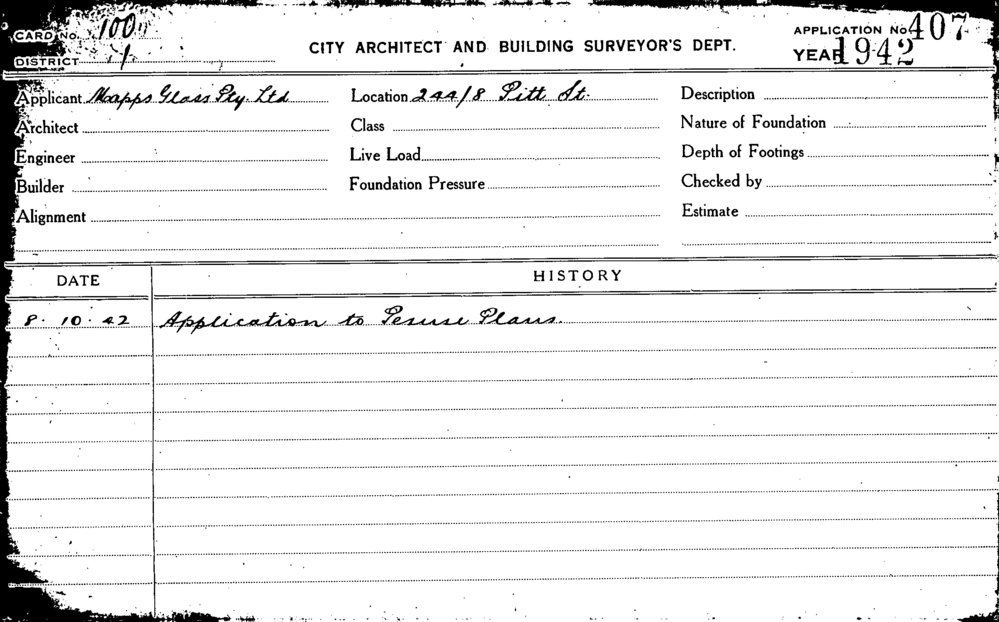 CARD No. 100
APPLICATION No 407
CITY ARCHITECT AND BUILDING SURVEYOR'S DEPT.
DISTRICT 1
YEAR 1942
Applicant Mapps Glass Pty. Ltd Location 244/8 Pitt St. Description
Architect Class Nature of Foundation
Engineer Live Load Depth of Footings
Builder Foundation Pressure Checked by
Alignment Estimate
DATE HISTORY
8. 10. 42 Application to Peruse Plans.